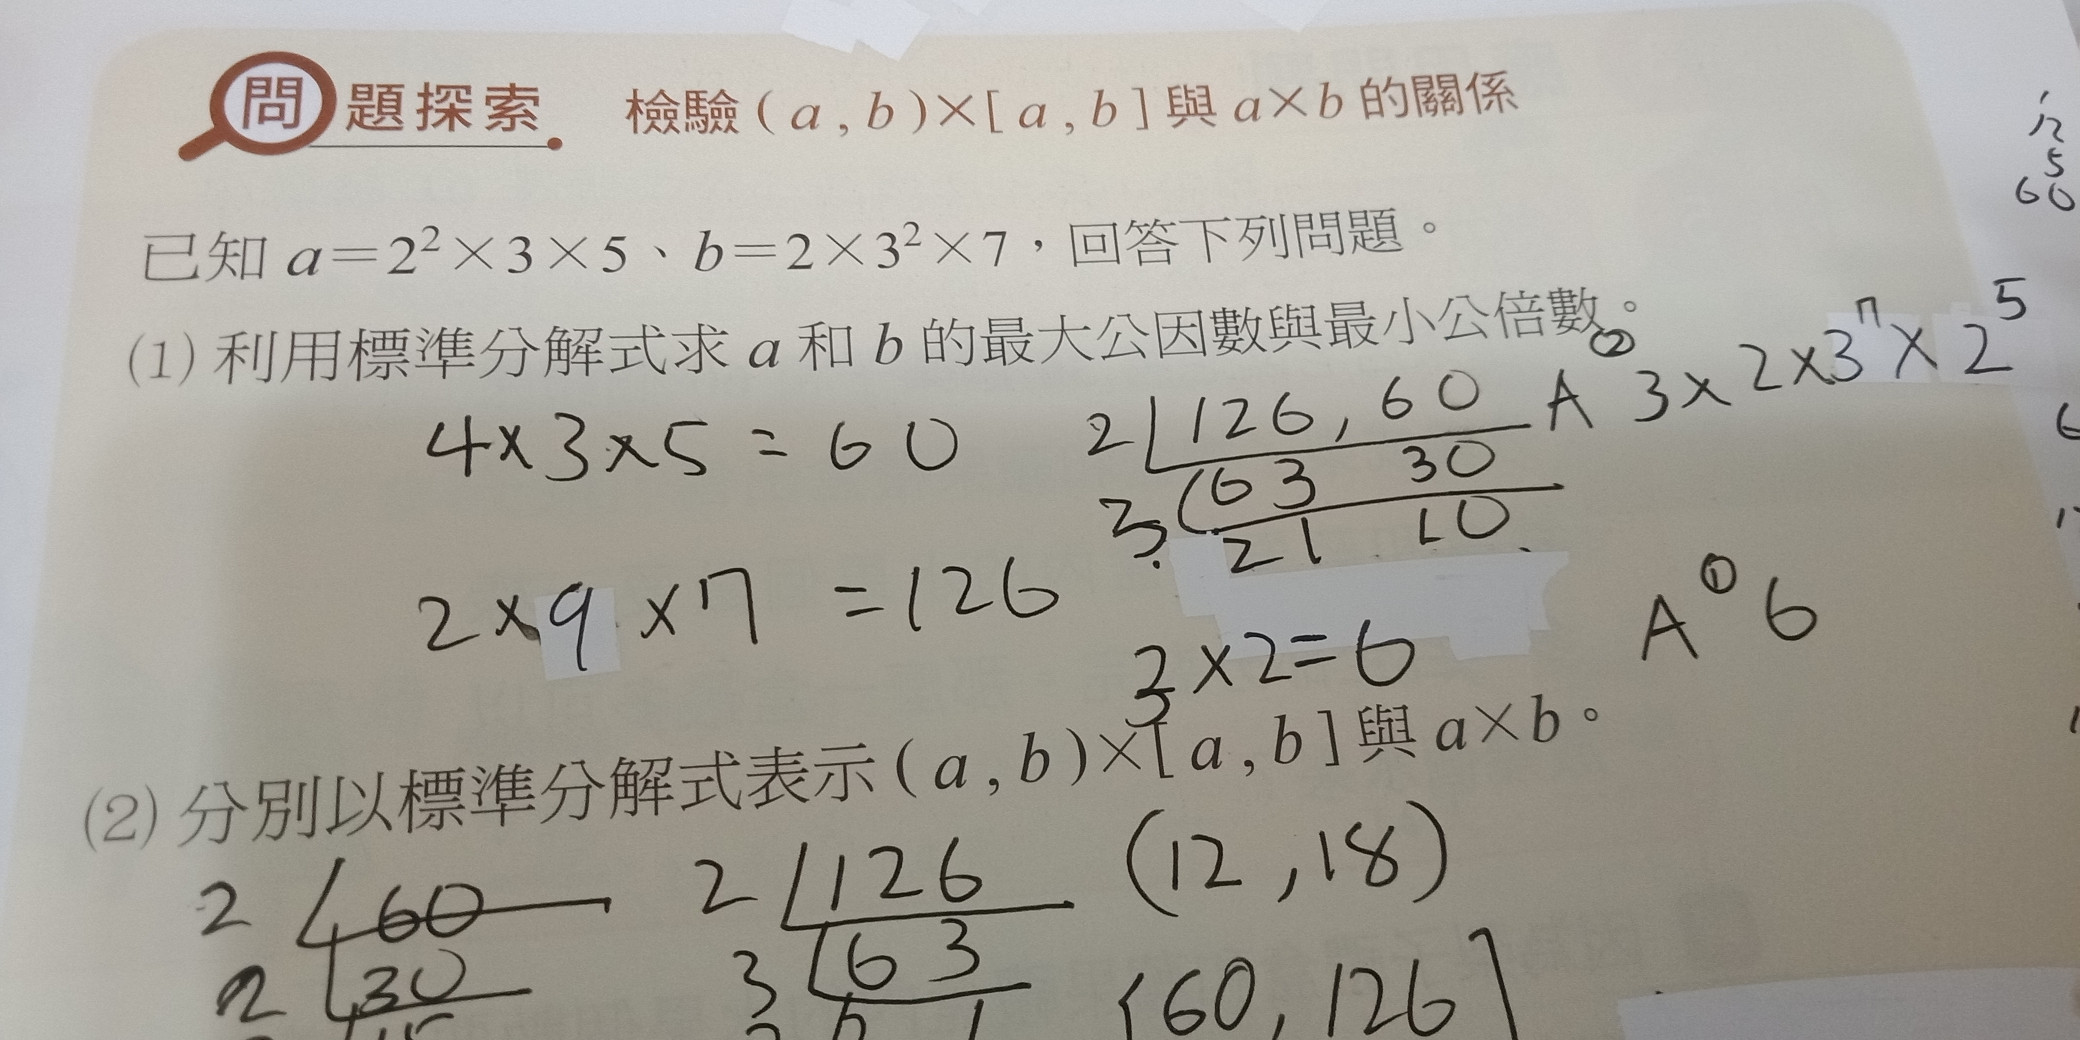 問題探索 檢驗(a,b)×[a,b]與a×b的關係
已知a=2²×3×5、b=2×3²×7，回答下列問題。
(1)利用標準分解式求a和b的最大公因數與最小公倍數。
4×3×5=60
2×9×7=126
2 126,60
3 63 30
21 10
3×2=6
A② 3×2×3⁷×2⁵
A① 6
(2)分別以標準分解式表示(a,b)×[a,b]與a×b。
2 60
2 30
15
2 126
3 63
(12,18)
[60,126]
12
5
60